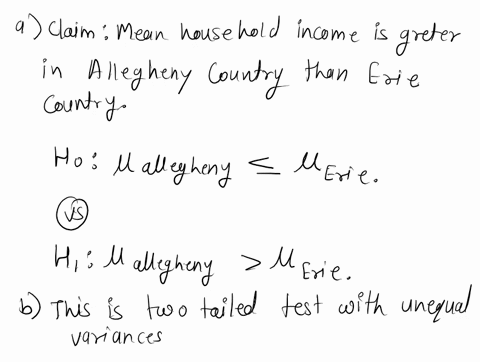 a) Claim: Mean household income is greter
in Allegheny Country than Erie
Country.
H₀: μ allegheny ≤ μ Erie.
VS
H₁: μ allegheny > μ Erie.
b) This is two tailed test with unequal
variances